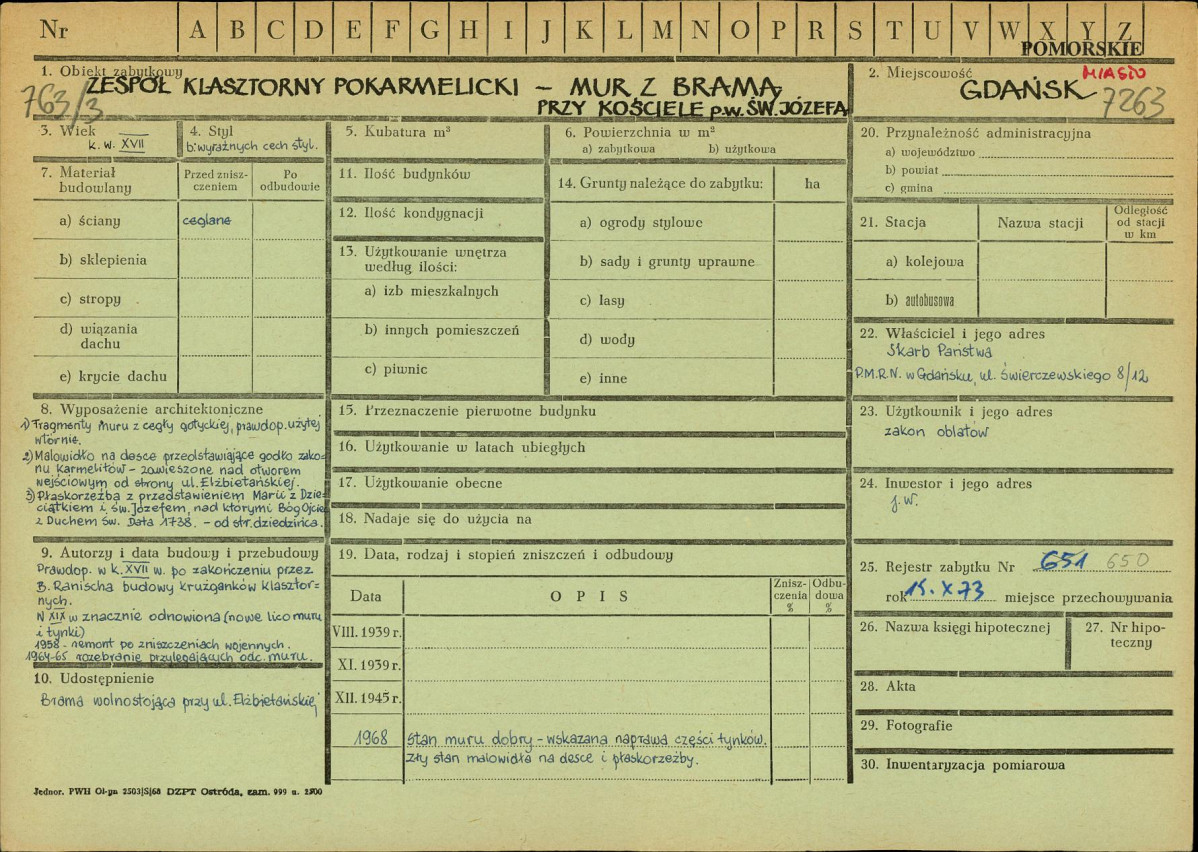 Nr A B C D E F G H I J K L M N O P R S T U V W X Y Z
POMORSKIE
1. Obiekt zabytkowy
ZESPÓŁ KLASZTORNY POKARMELICKI – MUR Z BRAMĄ
PRZY KOŚCIELE p.w. ŚW. JÓZEFA
763/3
2. Miejscowość
MIASTO
GDAŃSK
7263
3. Wiek
k. w. XVII
4. Styl
b. wyraźnych cech styl.
5. Kubatura m³
6. Powierzchnia w m²
a) zabytkowa b) użytkowa
7. Materiał budowlany
Przed zniszczeniem
Po odbudowie
a) ściany
ceglane
b) sklepienia
c) stropy
d) wiązania dachu
e) krycie dachu
8. Wyposażenie architektoniczne
1) Fragmenty muru z cegły gotyckiej, prawdop. użytej
wtórnie.
2) Malowidło na desce przedstawiające godło zako-
nu Karmelitów – zawieszone nad otworem
wejściowym od strony ul. Elżbietańskiej.
3) Płaskorzeźba z przedstawieniem Marii z Dzie-
ciątkiem i św. Józefem, nad którymi Bóg Ojciec
z Duchem Św. Data 1738. – od str. dziedzińca.
9. Autorzy i data budowy i przebudowy
Prawdop. w k. XVII w. po zakończeniu przez
B. Ranischa budowy krużganków klasztor=
nych.
W XIX w znacznie odnowiona (nowe lico muru
i tynki)
1958 - remont po zniszczeniach wojennych.
1964-65 rozebranie przylegających odc. muru.
10. Udostępnienie
Brama wolnostojąca przy ul. Elżbietańskiej
Jednor. PWH Ol-yn 2503/S/68 DZPT Ostróda, zam. 999 n. 2500
11. Ilość budynków
12. Ilość kondygnacji
13. Użytkowanie wnętrza
według ilości:
a) izb mieszkalnych
b) innych pomieszczeń
c) piwnic
14. Grunty należące do zabytku: ha
a) ogrody stylowe
b) sady i grunty uprawne
c) lasy
d) wody
e) inne
15. Przeznaczenie pierwotne budynku
16. Użytkowanie w latach ubiegłych
17. Użytkowanie obecne
18. Nadaje się do użycia na
19. Data, rodzaj i stopień zniszczeń i odbudowy
Data
OPIS
Zniszczenia %
Odbudowa %
VIII. 1939 r.
XI. 1939 r.
XII. 1945 r.
1968 Stan muru dobry – wskazana naprawa części tynków.
Zły stan malowidła na desce i płaskorzeźby.
20. Przynależność administracyjna
a) województwo
b) powiat
c) gmina
21. Stacja
Nazwa stacji
Odległość od stacji w km
a) kolejowa
b) autobusowa
22. Właściciel i jego adres
Skarb Państwa
P.M.R.N. w Gdańsku, ul. Świerczewskiego 8/12
23. Użytkownik i jego adres
zakon oblatów
24. Inwestor i jego adres
j.w.
25. Rejestr zabytku Nr 651 650
rok 15.X.73 miejsce przechowywania
26. Nazwa księgi hipotecznej
27. Nr hipoteczny
28. Akta
29. Fotografie
30. Inwentaryzacja pomiarowa